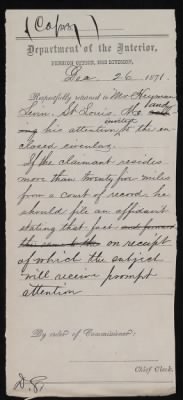 (Copy)
Department of the Interior,
PENSION OFFICE, 1812 DIVISION,
Dec 26, 1871.
Respectfully returned to Mrs Heyman
Levin. St Louis. Mo
inviting
his attention to the en-
closed circular.
If the claimant resides
more than twenty five miles
from a court of record he
should file an affidavit
stating that fact and forward
on receipt
of which the subject
will receive prompt
attention
By order of Commissioner:
Chief Clerk.